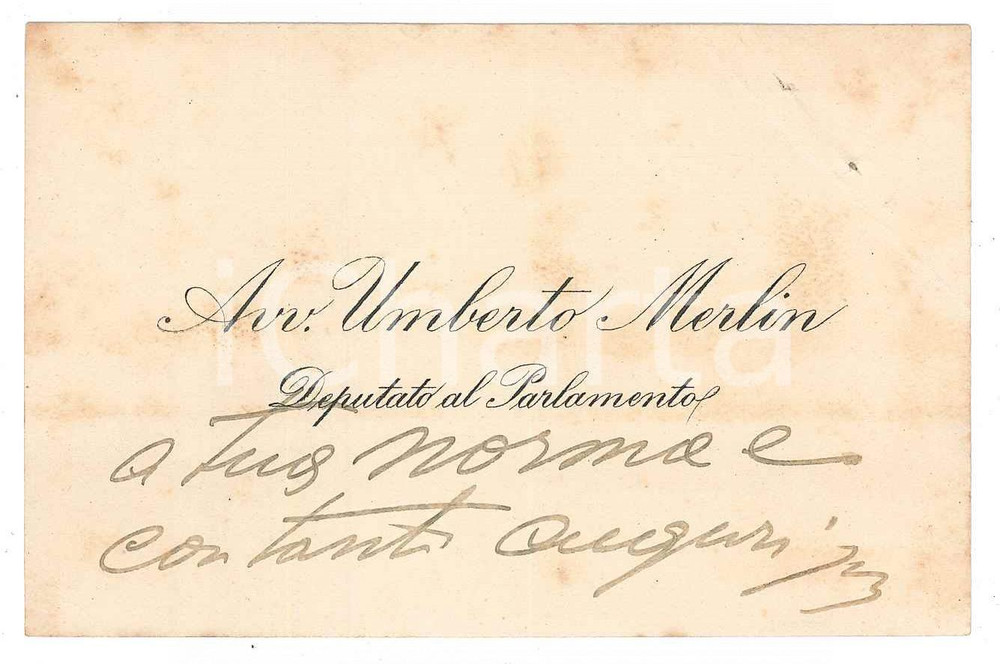 Avv. Umberto Merlin
Deputato al Parlamento
a tua norma e
con tanti auguri
iCharta